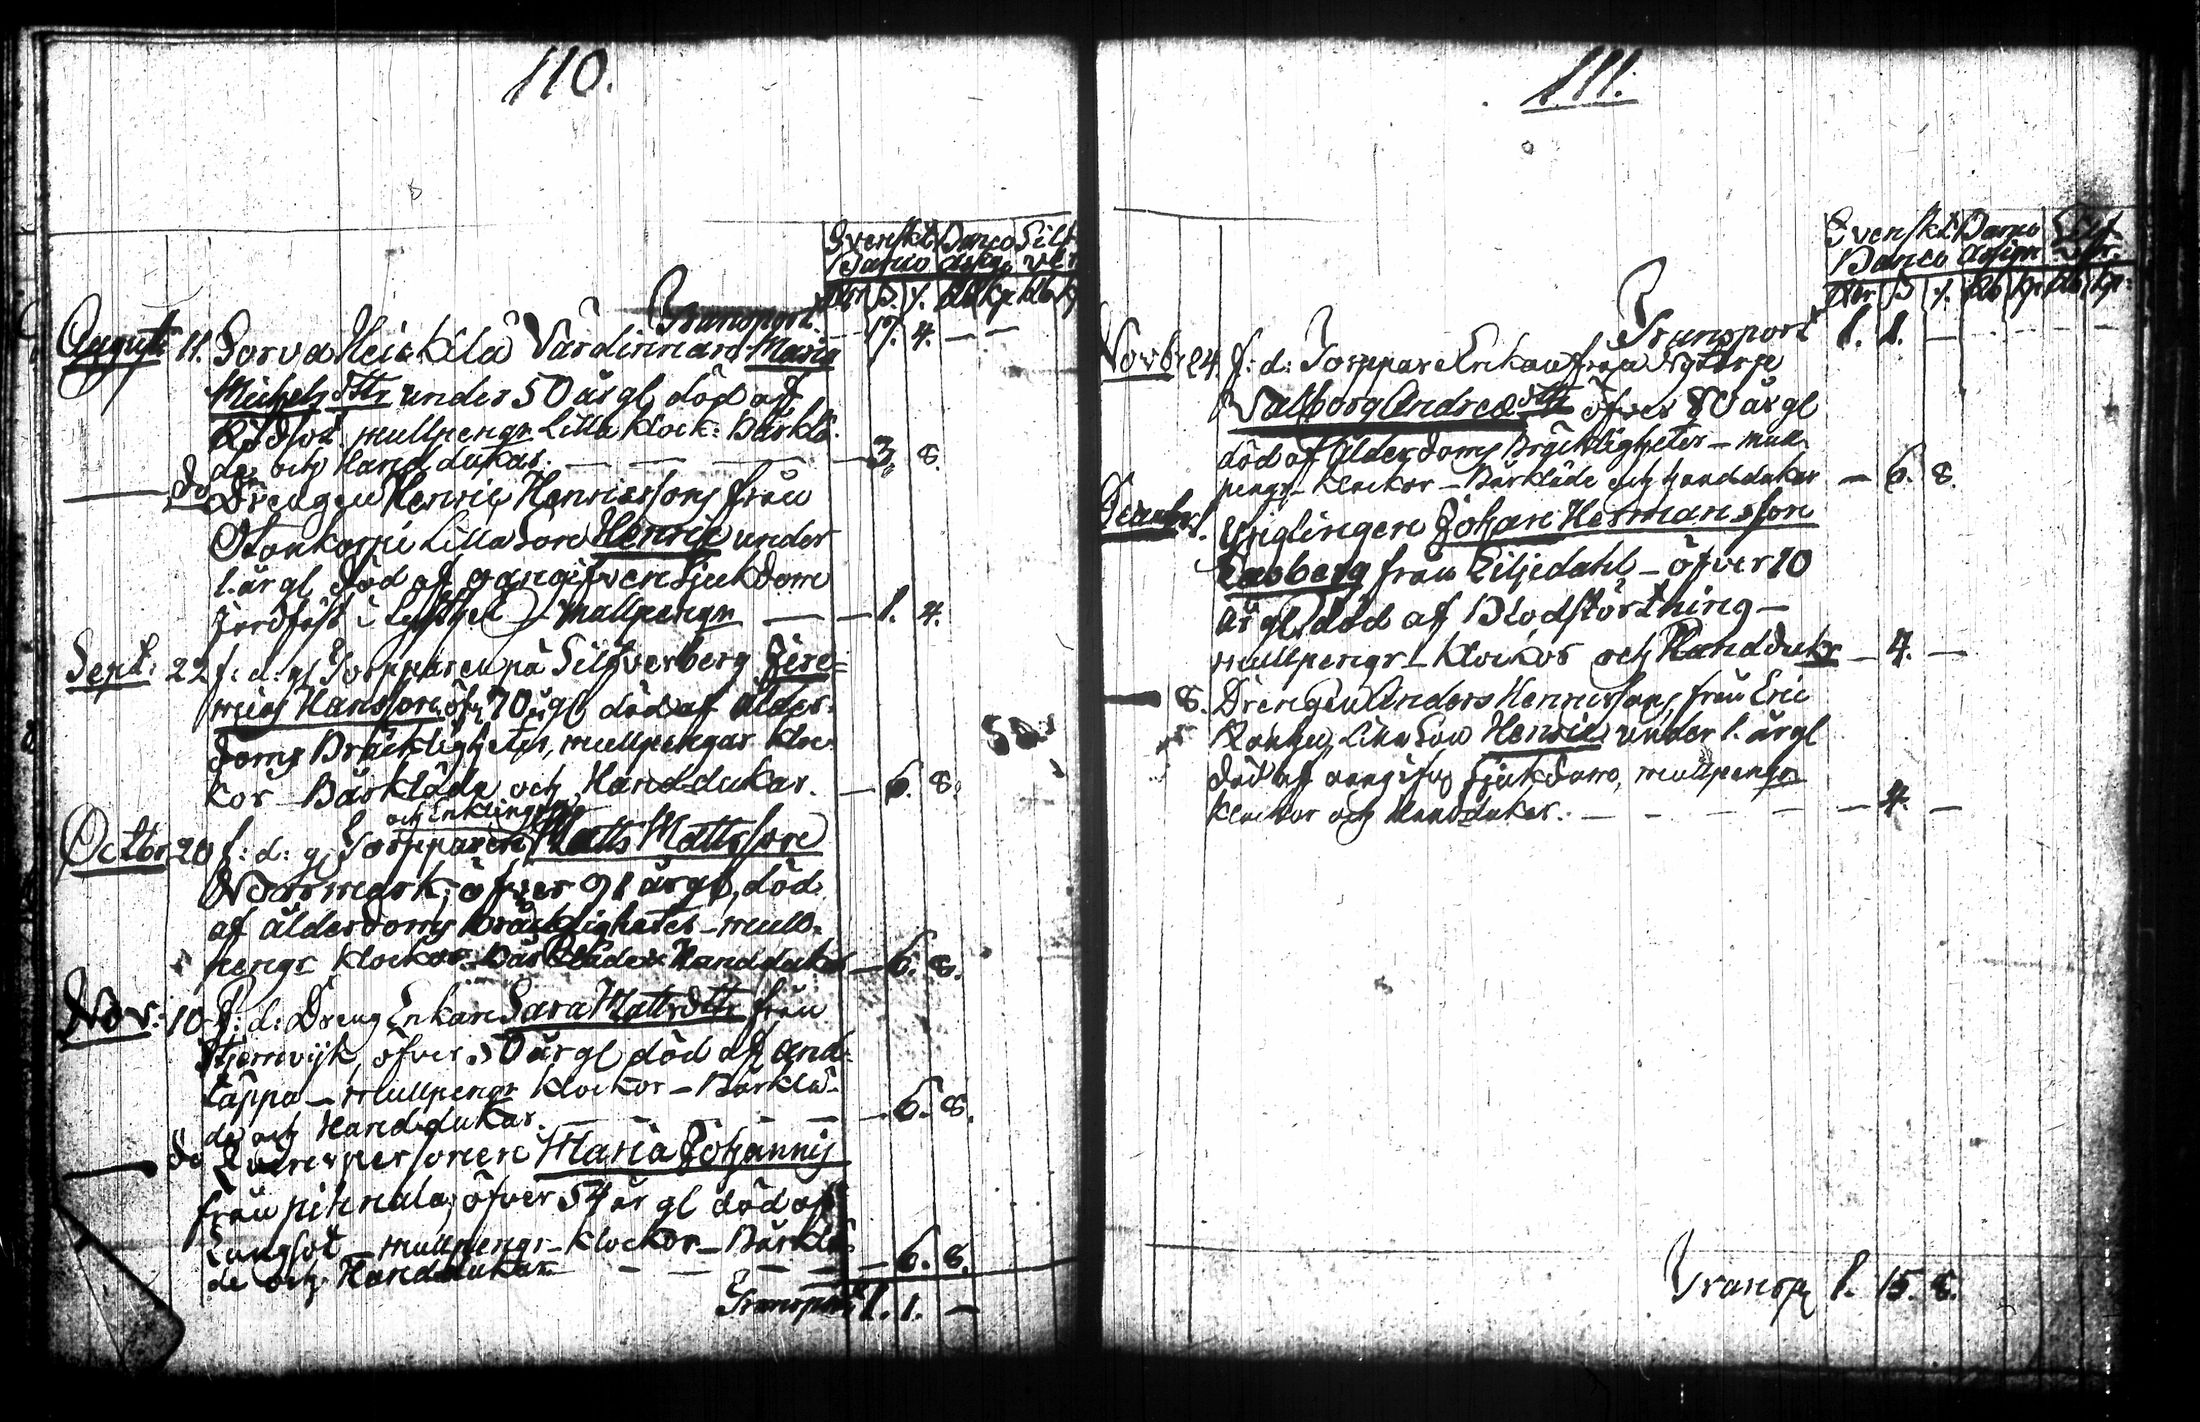 110.
Svenskt Banco Silf
Banco assign ver
Rdr ß. r. Rb kp Rb k
Transport. — 17. 4. — —
Augusti 11. Torva Heickilä Värdinnan Maria
Michels Dtr under 50 år gl död af
Rödsot. mullpengr Lilla klock: Bårklä-
de och Handdukar. — — — — 3. 8.
— do Drengen Henric Henricssons från
Stonkorpi Lilla Son Henric under
1. år gl. död af oangifven Sjukdom
Jordfäst i — mullpengr — — 1. 4.
Sept: 22 f: d: gl Torpparen på Silfverberg Jere-
mias Hansson öfr 70 år gl död af ålder-
doms Bräckligheter, mullpengar kloc-
kor Bårkläde och Handdukar. — 6. 8.
och Enklingen
Octbr 20 f: d: gl Torpparen Matts Mattsson
Norrmark; öfver 91 år gl, död
af ålderdoms bräckligheter – mull-
pengr klockor Bårkläde & Handdukar — 6. 8.
Nov: 10 f: d: Dreng Enkan Sara Matts Dtr från
Stjernvijk, öfver 50 år gl död af and-
täppa – mullpengr klockor – Bårklä-
de och Handdukar. — — — 6. 8.
— do Qvinspersonen Maria Johannis
från pihnala; öfver 54 år gl död af
Lungsot – mullpengr – klockor – Bårklä-
de och Handdukar — — — — 6. 8.
Transport 1. 1. —
111.
Svenskt Banco Silf
Banco assign ver.
Rdr ß r. Rb kp. Rb kp.
Transport 1. 1. —
Novbr 24. f: d: Torppare Enkan från Nytorp
Valborg Andreæ Dtr öfver 80 år gl
död af Ålderdoms Bräckligheter – mull-
pengr – klockor – Bårkläde och handdukar — 6. 8.
Decembr 1. Ynglingen Johan Hermansson
från Liljedahl – öfver 10
år gl, död af Blodstörtning –
mullpengr – klockor och Handdukr — 4. —
— 8. Drengen Anders Henricssons från Eric
Lilla Son Henric under 1. år gl
död af oangifven sjukdom, mullpengr
klockor och Handdukar. — — — 4. —
Transp 1. 15. 8.